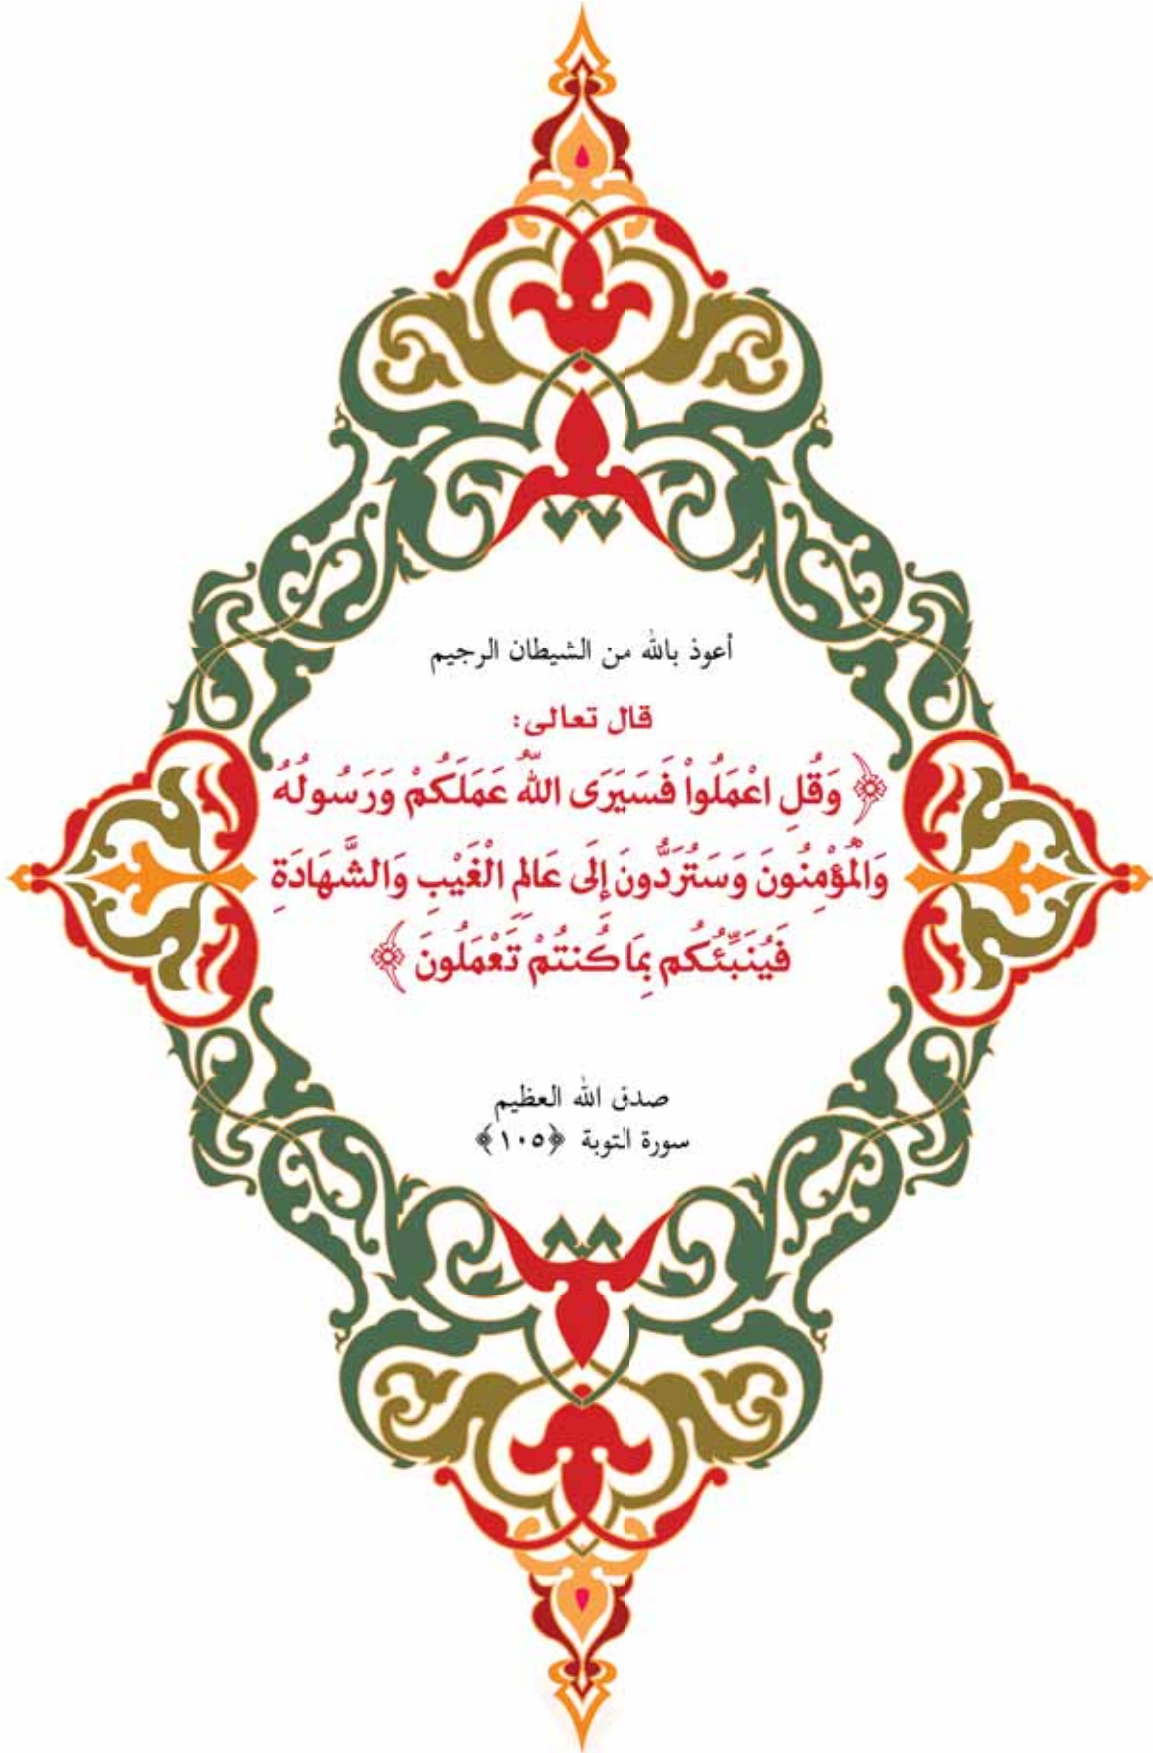 أعوذ بالله من الشيطان الرجيم
قال تعالى:
﴿ وَقُلِ اعْمَلُواْ فَسَيَرَى اللّهُ عَمَلَكُمْ وَرَسُولُهُ
وَالْمُؤْمِنُونَ وَسَتُرَدُّونَ إِلَى عَالِمِ الْغَيْبِ وَالشَّهَادَةِ
فَيُنَبِّئُكُم بِمَا كُنتُمْ تَعْمَلُونَ ﴾
صدق الله العظيم
سورة التوبة ﴿١٠٥﴾